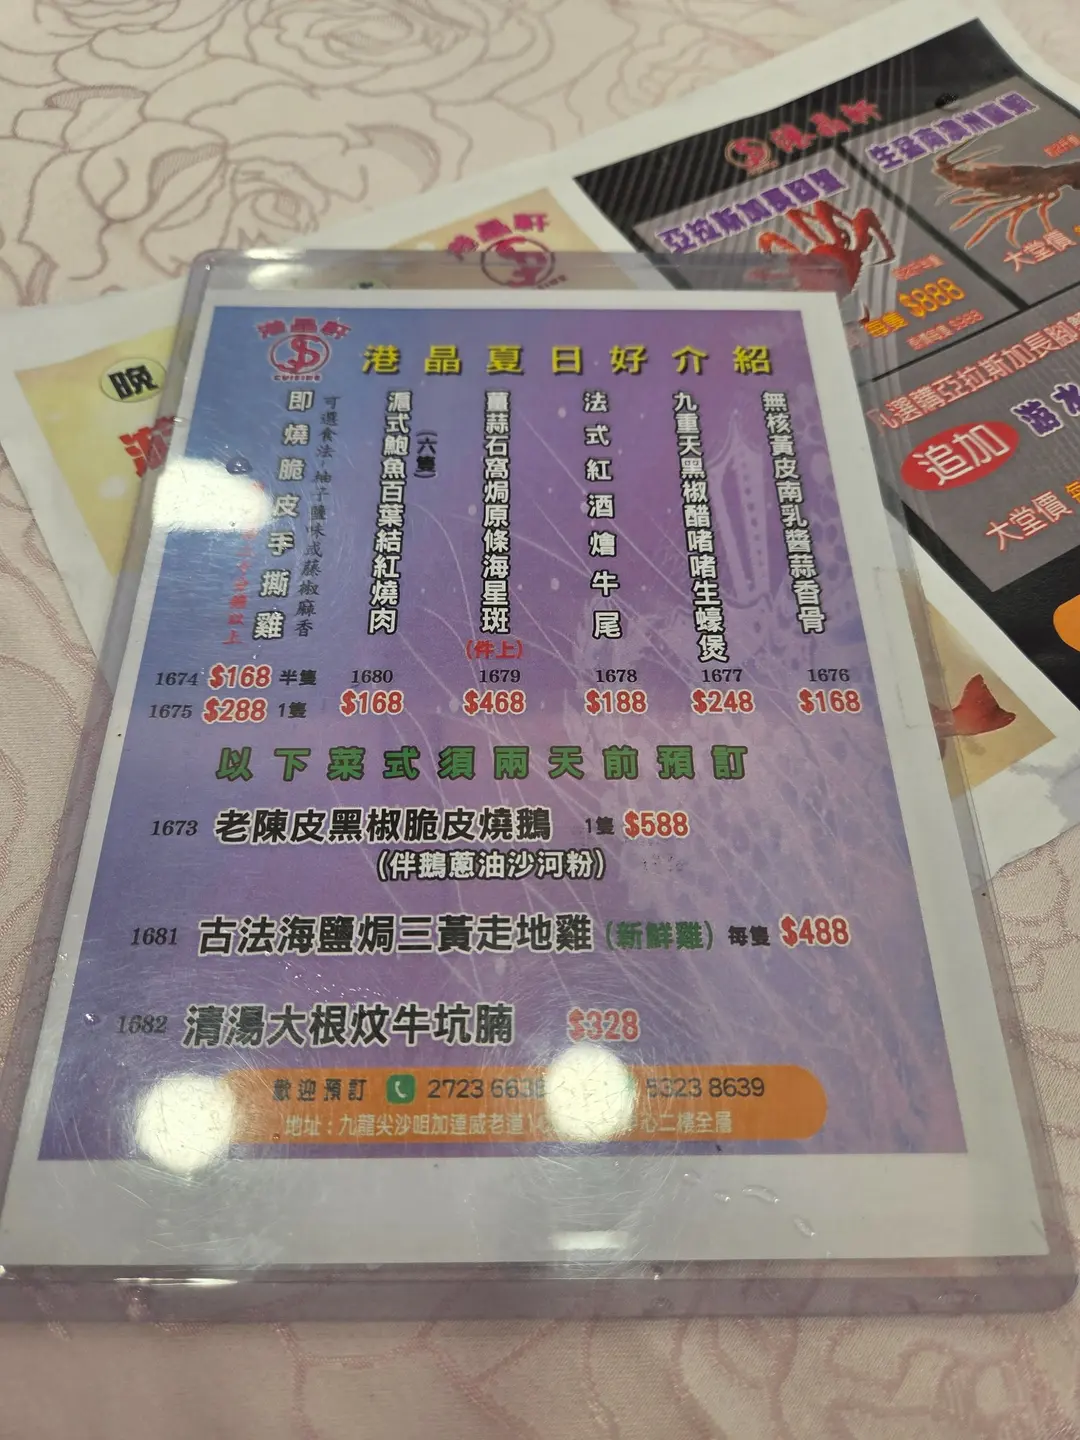 港晶軒
CUISINE
港晶夏日好介紹
無核黃皮南乳醬蒜香骨
1676
$168
九重天黑椒醋啫啫生蠔煲
1677
$248
法式紅酒燴牛尾
1678
$188
薑蒜石窩焗原條海星斑
(件上)
1679
$468
滬式鮑魚百葉結紅燒肉
(六隻)
1680
$168
即燒脆皮手撕雞
可選食法:柚子鹽味或藤椒麻香
1674 $168 半隻
1675 $288 1隻
以下菜式須兩天前預訂
1673 老陳皮黑椒脆皮燒鵝 1隻 $588
(伴鵝蔥油沙河粉)
1681 古法海鹽焗三黃走地雞 (新鮮雞) 每隻 $488
1682 清湯大根炆牛坑腩 $328
歡迎預訂 2723 663 5323 8639
地址:九龍尖沙咀加連威老道 心二樓全層
晚
港晶軒
港晶軒
亞拉斯加
每隻 $888
生猛南澳洲龍蝦
大堂價
選購亞拉斯加長腳
追加 游水
大堂價